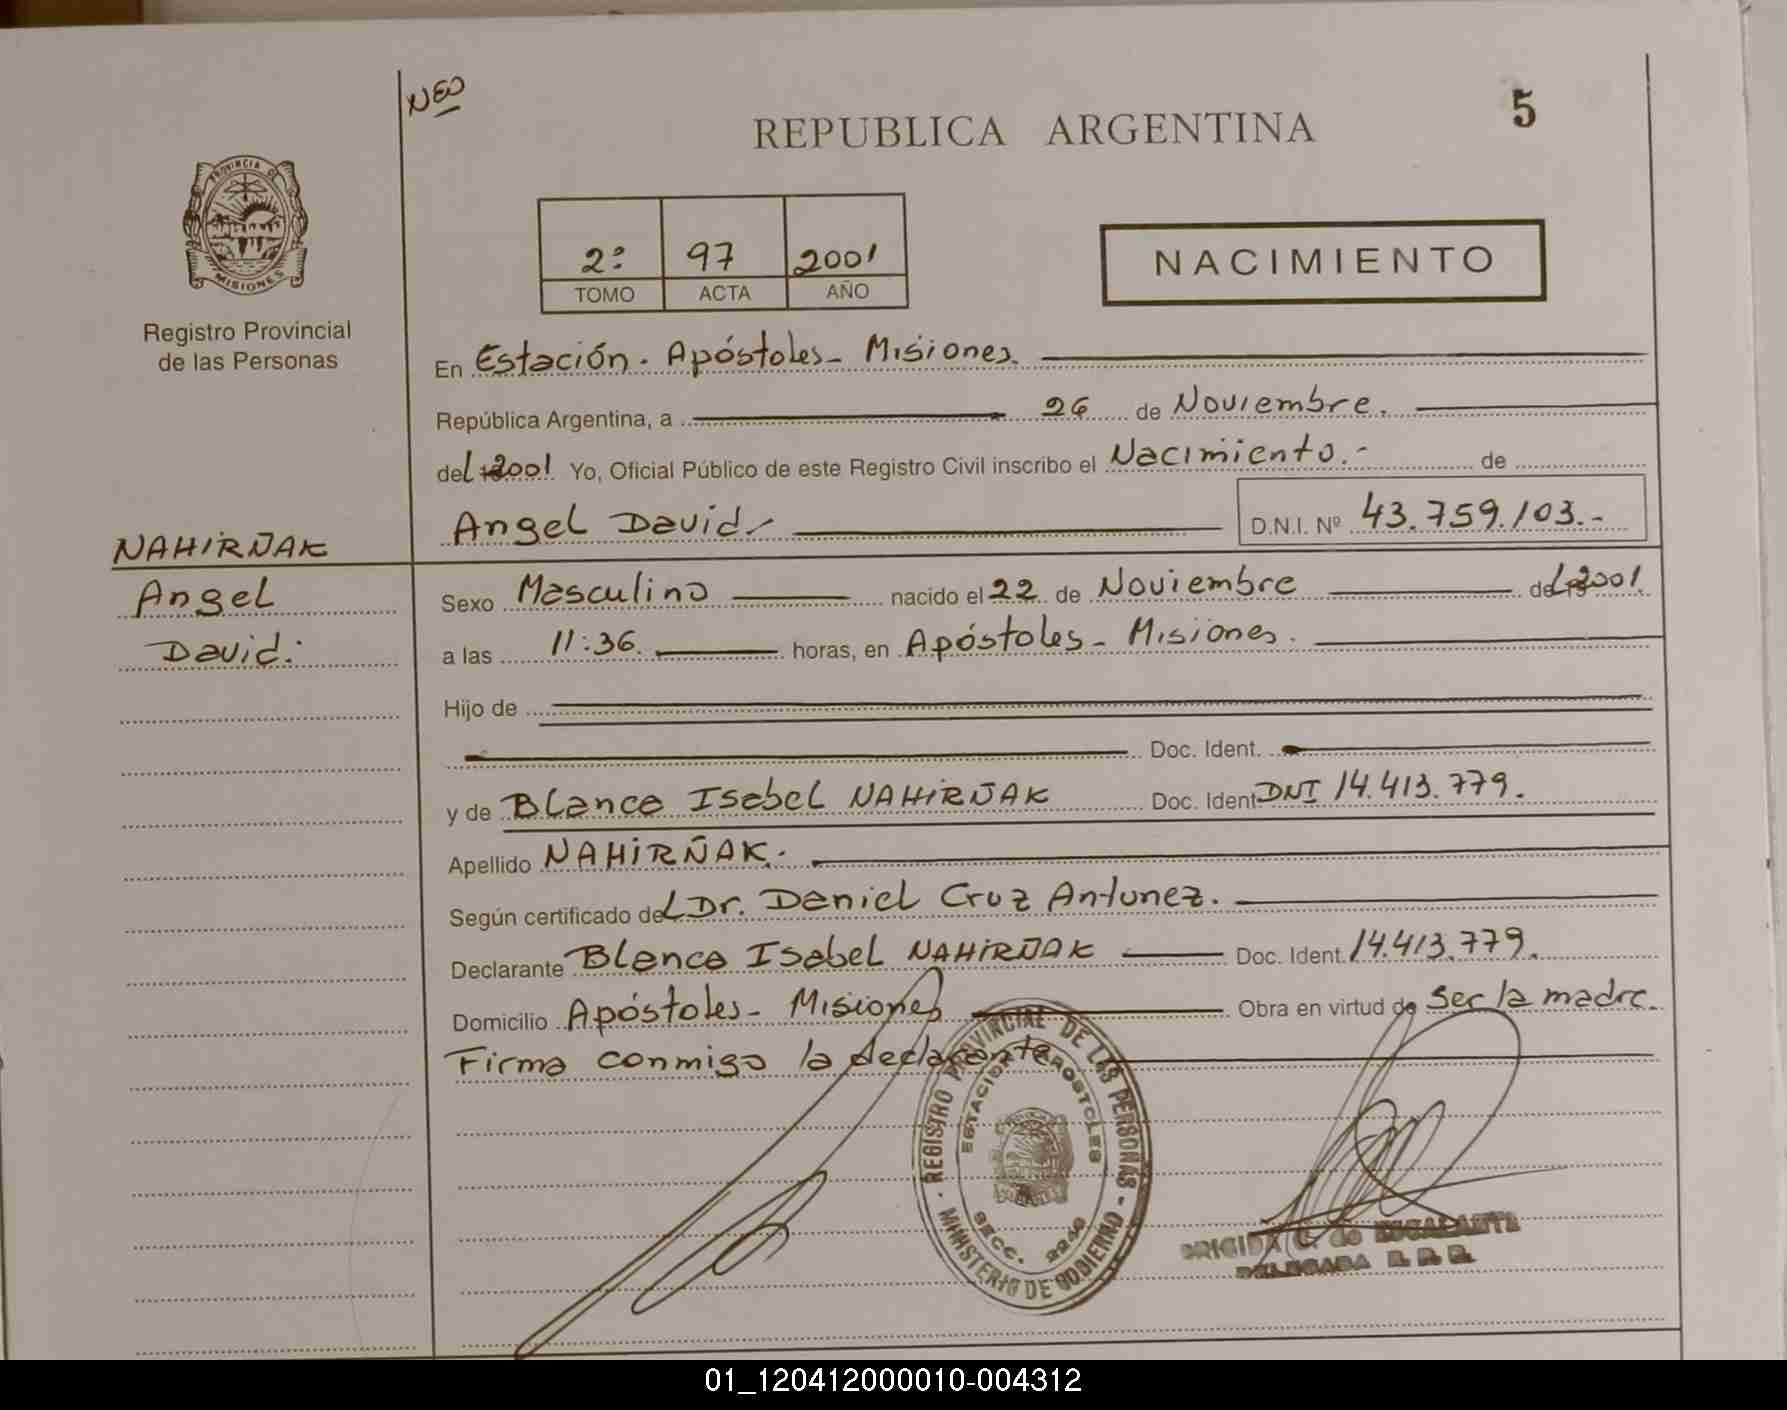 NEO
REPUBLICA ARGENTINA
5
PROVINCIA DE
MISIONES
Registro Provincial
de las Personas
2º 97 2001
TOMO ACTA AÑO
NACIMIENTO
En Estación - Apóstoles - Misiones.
República Argentina, a 26 de Noviembre.
del 2001 Yo, Oficial Público de este Registro Civil inscribo el Nacimiento.- de
Angel David D.N.I. Nº 43.759.103.-
NAHIRÑAK
Angel
David.
Sexo Masculino nacido el 22 de Noviembre del 2001.
a las 11:36. horas, en Apóstoles - Misiones.
Hijo de
Doc. Ident.
y de Blanca Isabel NAHIRÑAK Doc. Ident DNI 14.413.779.
Apellido NAHIRÑAK.
Según certificado del Dr. Daniel Cruz Antunez.
Declarante Blanca Isabel NAHIRÑAK Doc. Ident. 14.413.779.
Domicilio Apóstoles - Misiones Obra en virtud de ser la madre.
Firma conmigo la declarante
REGISTRO PROVINCIAL DE LAS PERSONAS - MINISTERIO DE GOBIERNO -
ESTACION APOSTOLES
SECC. 2240
BRIGIDA G. de ESCALANTE
DELEGADA
01_120412000010-004312